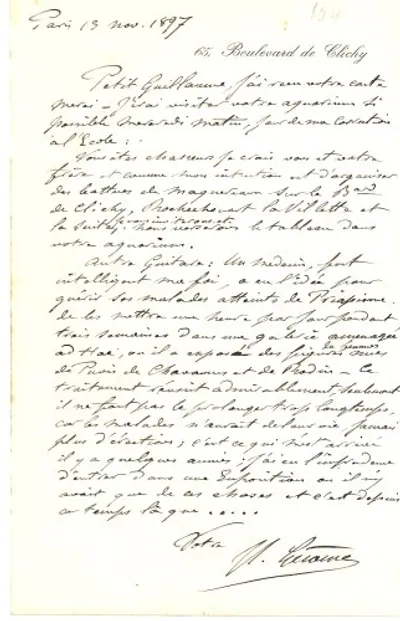 Paris 13 nov. 1897
65, Boulevard de Clichy
Petit Guillaume, j'ai reçu votre carte
merci – J'irai visiter votre aquarium si
possible mercredi matin, jour de ma correction
à l'Ecole :
Vous êtes chasseurs je crois vous et votre
frère et comme mon intention est d'organiser
des battues de maquereaux sur le Bard
de Clichy, Rochechouart la Villette et
la suite, je vous inviterai etc.
nous verserons le tableau dans
votre aquarium.
Autre Guitare : Un medecin, fort
intelligent ma foi, a eu l'idée pour
guérir ses malades atteints de Priapisme
de les mettre une heure par jour pendant
trois semaines dans une galerie aménagée
ad hoc, où il a exposé des figures nues
de femmes
de Puvis de Chavannes et de Rodin – Ce
traitement réussit admirablement seulement
il ne faut pas le prolonger trop longtemps,
car les malades n'aurait de leur vie, jamais
plus d'érections ; c'est ce qui m'est arrivé
il y a quelques années ; j'ai eu l'imprudence
d'entrer dans une Exposition où il n'y
avait que de ces choses et c'est depuis
ce temps là que .....
Votre